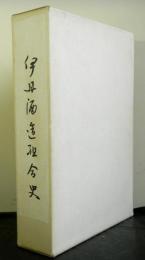 伊丹酒造組合史